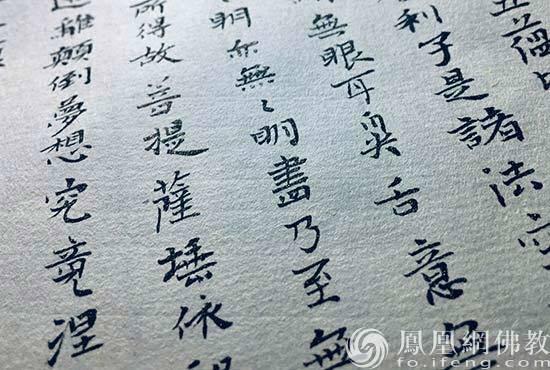 蘊
利子是諸法空
無眼耳鼻舌意
明亦無〻明盡乃至無
所得故菩提薩埵依
離顛倒夢想究竟涅
鳳凰網佛教
fo.ifeng.com